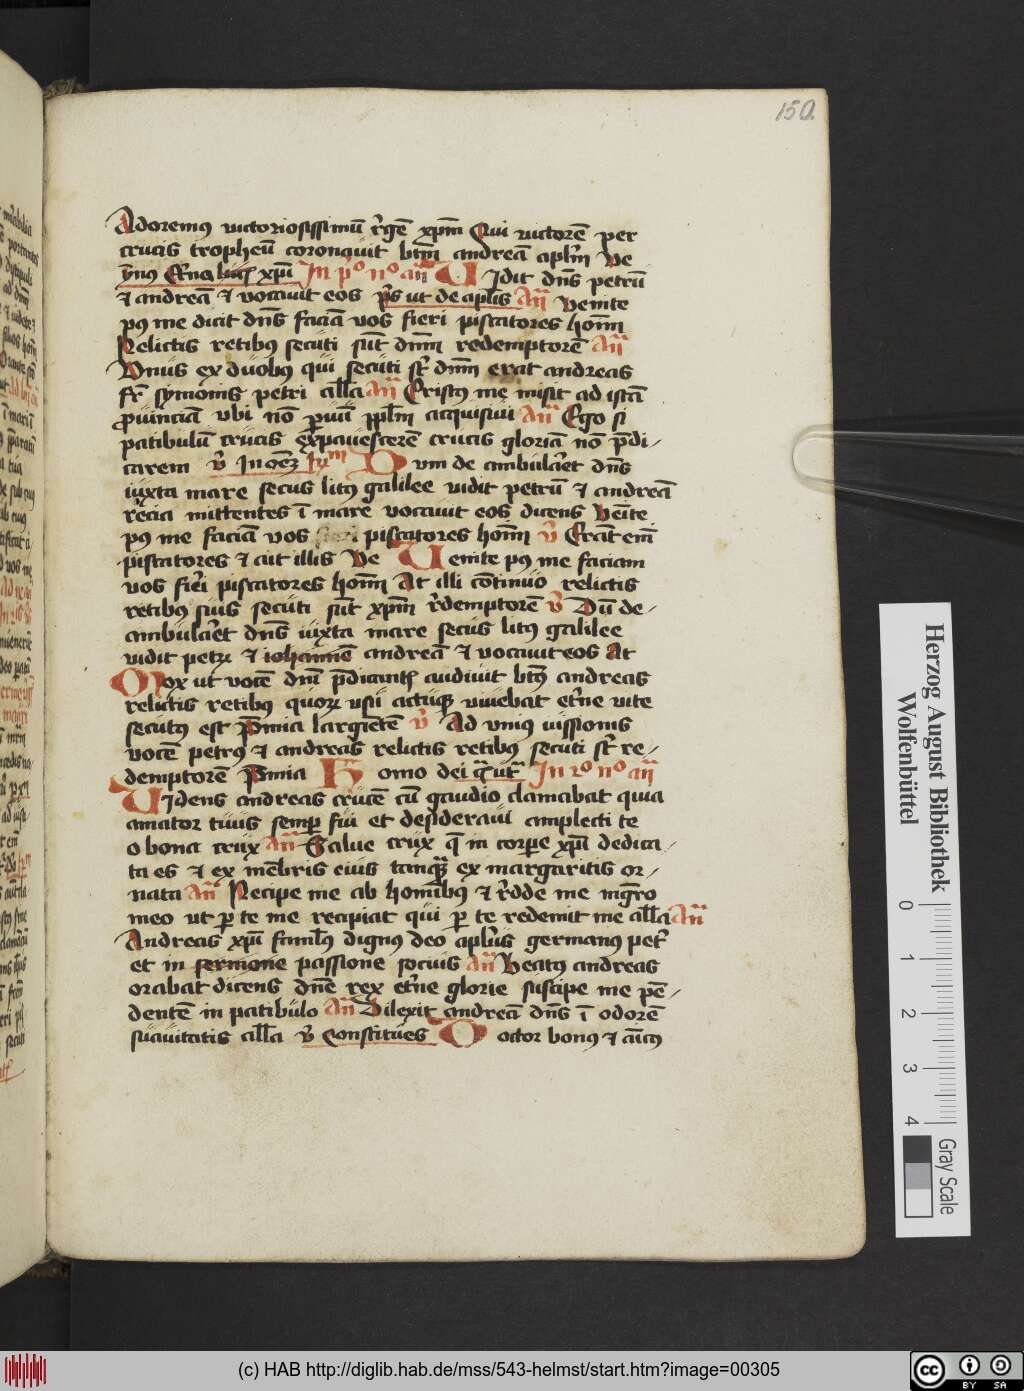 150.
Adoremus victoriosissimū rgē xpm Qui victorē per
crucis tropheū coronavit btm andreā aplm Ve
In po no añ Vidit dns petrū
⁊ andreā ⁊ vocavit eos ps ut de aplis Añ Venite
pꝰ me dicit dns faciā vos fieri piscatores homī
Relictis retibꝰ secuti sūt dnm redemptorē Añ
Vnus ex duobꝰ qui secuti st dnm erat andreas
fr symonis petri alla Añ Cristꝰ me misit ad istā
provinciā vbi nō pvuū pplm acquisivi Añ Ego si
patibulū crucis expavescerē crucis gloriā nō pdi-
carem
Dum de ambularet dns
iuxta mare secus litꝰ galilee vidit petrū ⁊ andreā
recia mittentes ī mare vocavit eos dicens Veīte
pꝰ me faciā vos piscatores homī v Erāt em
piscatores ⁊ ait illis Ve Venite pꝰ me faciam
vos fieri piscatores homī At illi cōtinuo relictis
retibꝰ suis secuti sūt xpm rdemptorē v Dū de-
ambularet dns iuxta mare secus litꝰ galilee
vidit petrū ⁊ iohannē andreā ⁊ vocavit eos At
Mox ut vocē dni pdicantis audivit btꝰ andreas
relictis retibꝰ quoꝝ usu actuqꝫ vivebat etne vite
secutꝰ est pmia largientē v Ad vniꝰ iussionis
vocē petrꝰ ⁊ andreas relictis retibꝰ secuti st re-
demptorē pmia Homo dei In 2o no añ
Videns andreas crucē cū gaudio clamabat quia
amator tuus semp fui et desideravi amplecti te
o bona crux Añ Salve crux q̄ in corpe xpi dedica-
ta es ⁊ ex mēbris eius tanqꝫ ex margaritis or-
nata Añ Recipe me ab homībꝰ ⁊ rdde me mgro
meo ut p te me recipiat qui p te redemit me alla Añ
Andreas xpi famlꝰ dignꝰ deo aplis germanꝰ petr
et in sermone passione socius Añ Beatꝰ andreas
orabat dicens dne rex etne glorie suscipe me pē-
dentē in patibulo Añ Dilexit andreā dns ī odorē
suavitatis alla v Constitues Doctor bonꝰ ⁊ amicꝰ
Herzog August Bibliothek
Wolfenbüttel
0 1 2 3 4
Gray Scale
(c) HAB http://diglib.hab.de/mss/543-helmst/start.htm?image=00305
cc BY SA